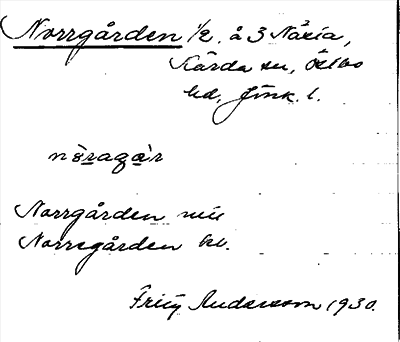 Norrgården 1/2 å 3 Nåxia,
Kärda sn, Östbo
hd, Jönk. l.
nòragàr
Norrgården mil
Norregården kv.
Fritz Andersson 1930.